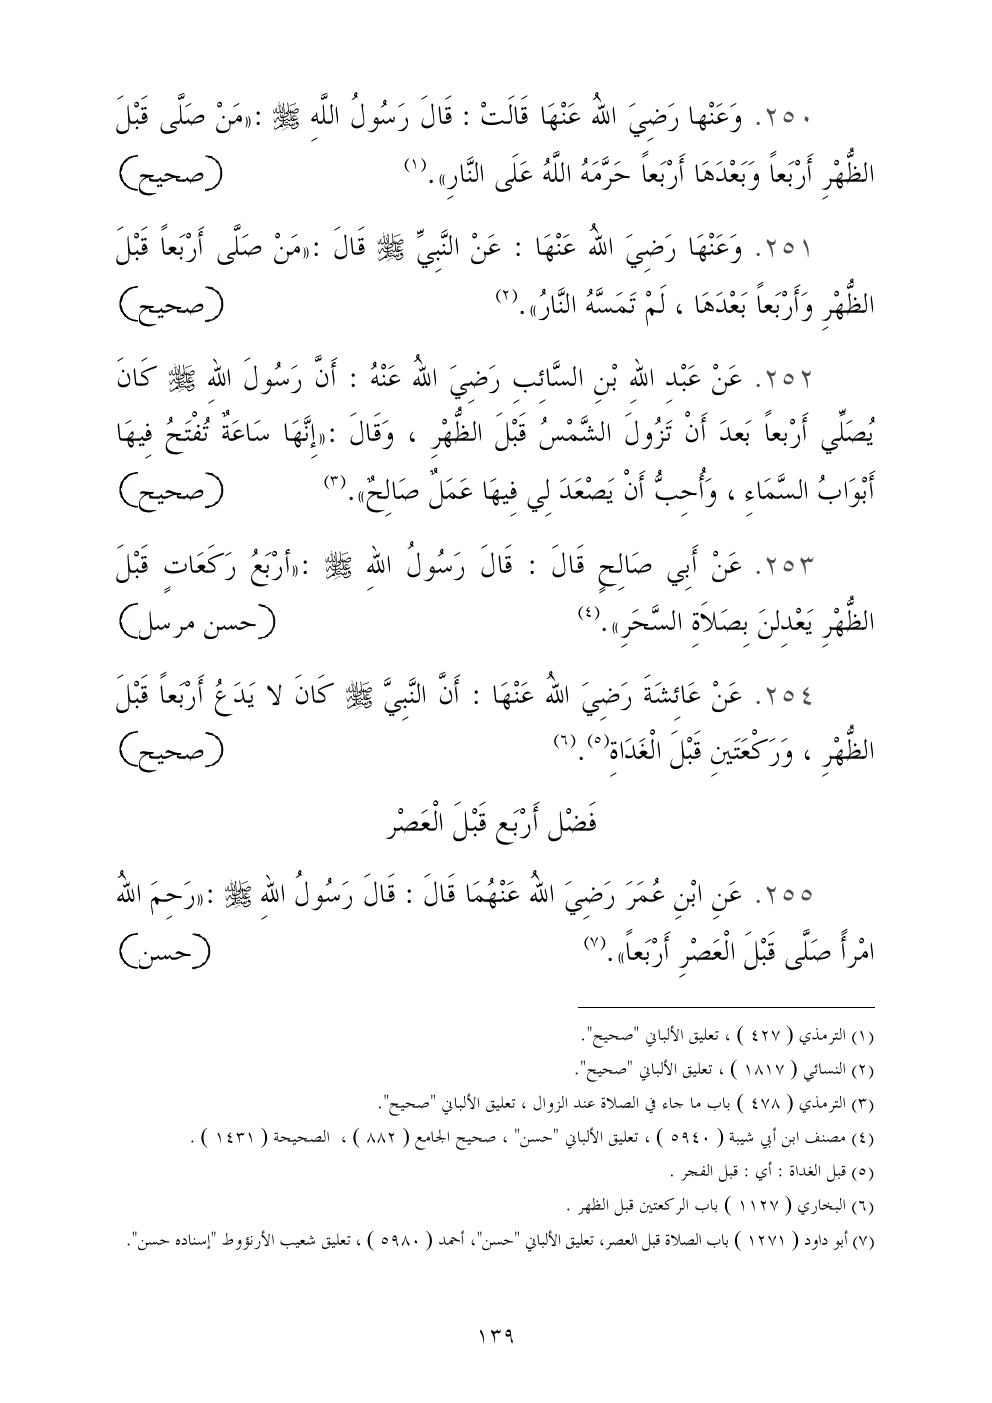 ٢٥٠. وَعَنْها رَضِيَ اللهُ عَنْهَا قَالَتْ : قَالَ رَسُولُ اللَّهِ ﷺ :«مَنْ صَلَّى قَبْلَ
الظُّهْرِ أَرْبَعاً وَبَعْدَهَا أَرْبَعاً حَرَّمَهُ اللَّهُ عَلَى النَّارِ».(١) (صحيح)
٢٥١. وَعَنْهَا رَضِيَ اللهُ عَنْهَا : عَنْ النَّبِيِّ ﷺ قَالَ :«مَنْ صَلَّى أَرْبَعاً قَبْلَ
الظُّهْرِ وَأَرْبَعاً بَعْدَهَا ، لَمْ تَمَسَّهُ النَّارُ».(٢) (صحيح)
٢٥٢. عَنْ عَبْدِ اللهِ بْنِ السَّائِبِ رَضِيَ اللهُ عَنْهُ : أَنَّ رَسُولَ اللهِ ﷺ كَانَ
يُصَلِّي أَرْبعاً بَعدَ أَنْ تَزُولَ الشَّمْسُ قَبْلَ الظُّهْرِ ، وَقَالَ :«إِنَّهَا سَاعَةٌ تُفْتَحُ فِيهَا
أَبْوَابُ السَّمَاءِ ، وَأُحِبُّ أَنْ يَصْعَدَ لِي فِيهَا عَمَلٌ صَالِحٌ».(٣) (صحيح)
٢٥٣. عَنْ أَبِي صَالِحٍ قَالَ : قَالَ رَسُولُ اللهِ ﷺ :«أرْبَعُ رَكَعَاتٍ قَبْلَ
الظُّهْرِ يَعْدِلنَ بِصَلاَةِ السَّحَرِ».(٤) (حسن مرسل)
٢٥٤. عَنْ عَائِشَةَ رَضِيَ اللهُ عَنْهَا : أَنَّ النَّبِيَّ ﷺ كَانَ لا يَدَعُ أَرْبَعاً قَبْلَ
الظُّهْرِ ، وَرَكْعَتَينِ قَبْلَ الْغَدَاةِ(٥).(٦) (صحيح)
فَضْل أَرْبَع قَبْلَ الْعَصْر
٢٥٥. عَنِ ابْنِ عُمَرَ رَضِيَ اللهُ عَنْهُمَا قَالَ : قَالَ رَسُولُ اللهِ ﷺ :«رَحِمَ اللهُ
امْرأً صَلَّى قَبْلَ الْعَصْرِ أَرْبَعاً».(٧) (حسن)
(١) الترمذي ( ٤٢٧ ) ، تعليق الألباني "صحيح".
(٢) النسائي ( ١٨١٧ ) ، تعليق الألباني "صحيح".
(٣) الترمذي ( ٤٧٨ ) باب ما جاء في الصلاة عند الزوال ، تعليق الألباني "صحيح".
(٤) مصنف ابن أبي شيبة ( ٥٩٤٠ ) ، تعليق الألباني "حسن" ، صحيح الجامع ( ٨٨٢ ) ، الصحيحة ( ١٤٣١ ) .
(٥) قبل الغداة : أي : قبل الفجر .
(٦) البخاري ( ١١٢٧ ) باب الركعتين قبل الظهر .
(٧) أبو داود ( ١٢٧١ ) باب الصلاة قبل العصر، تعليق الألباني "حسن"، أحمد ( ٥٩٨٠ ) ، تعليق شعيب الأرنؤوط "إسناده حسن".
١٣٩